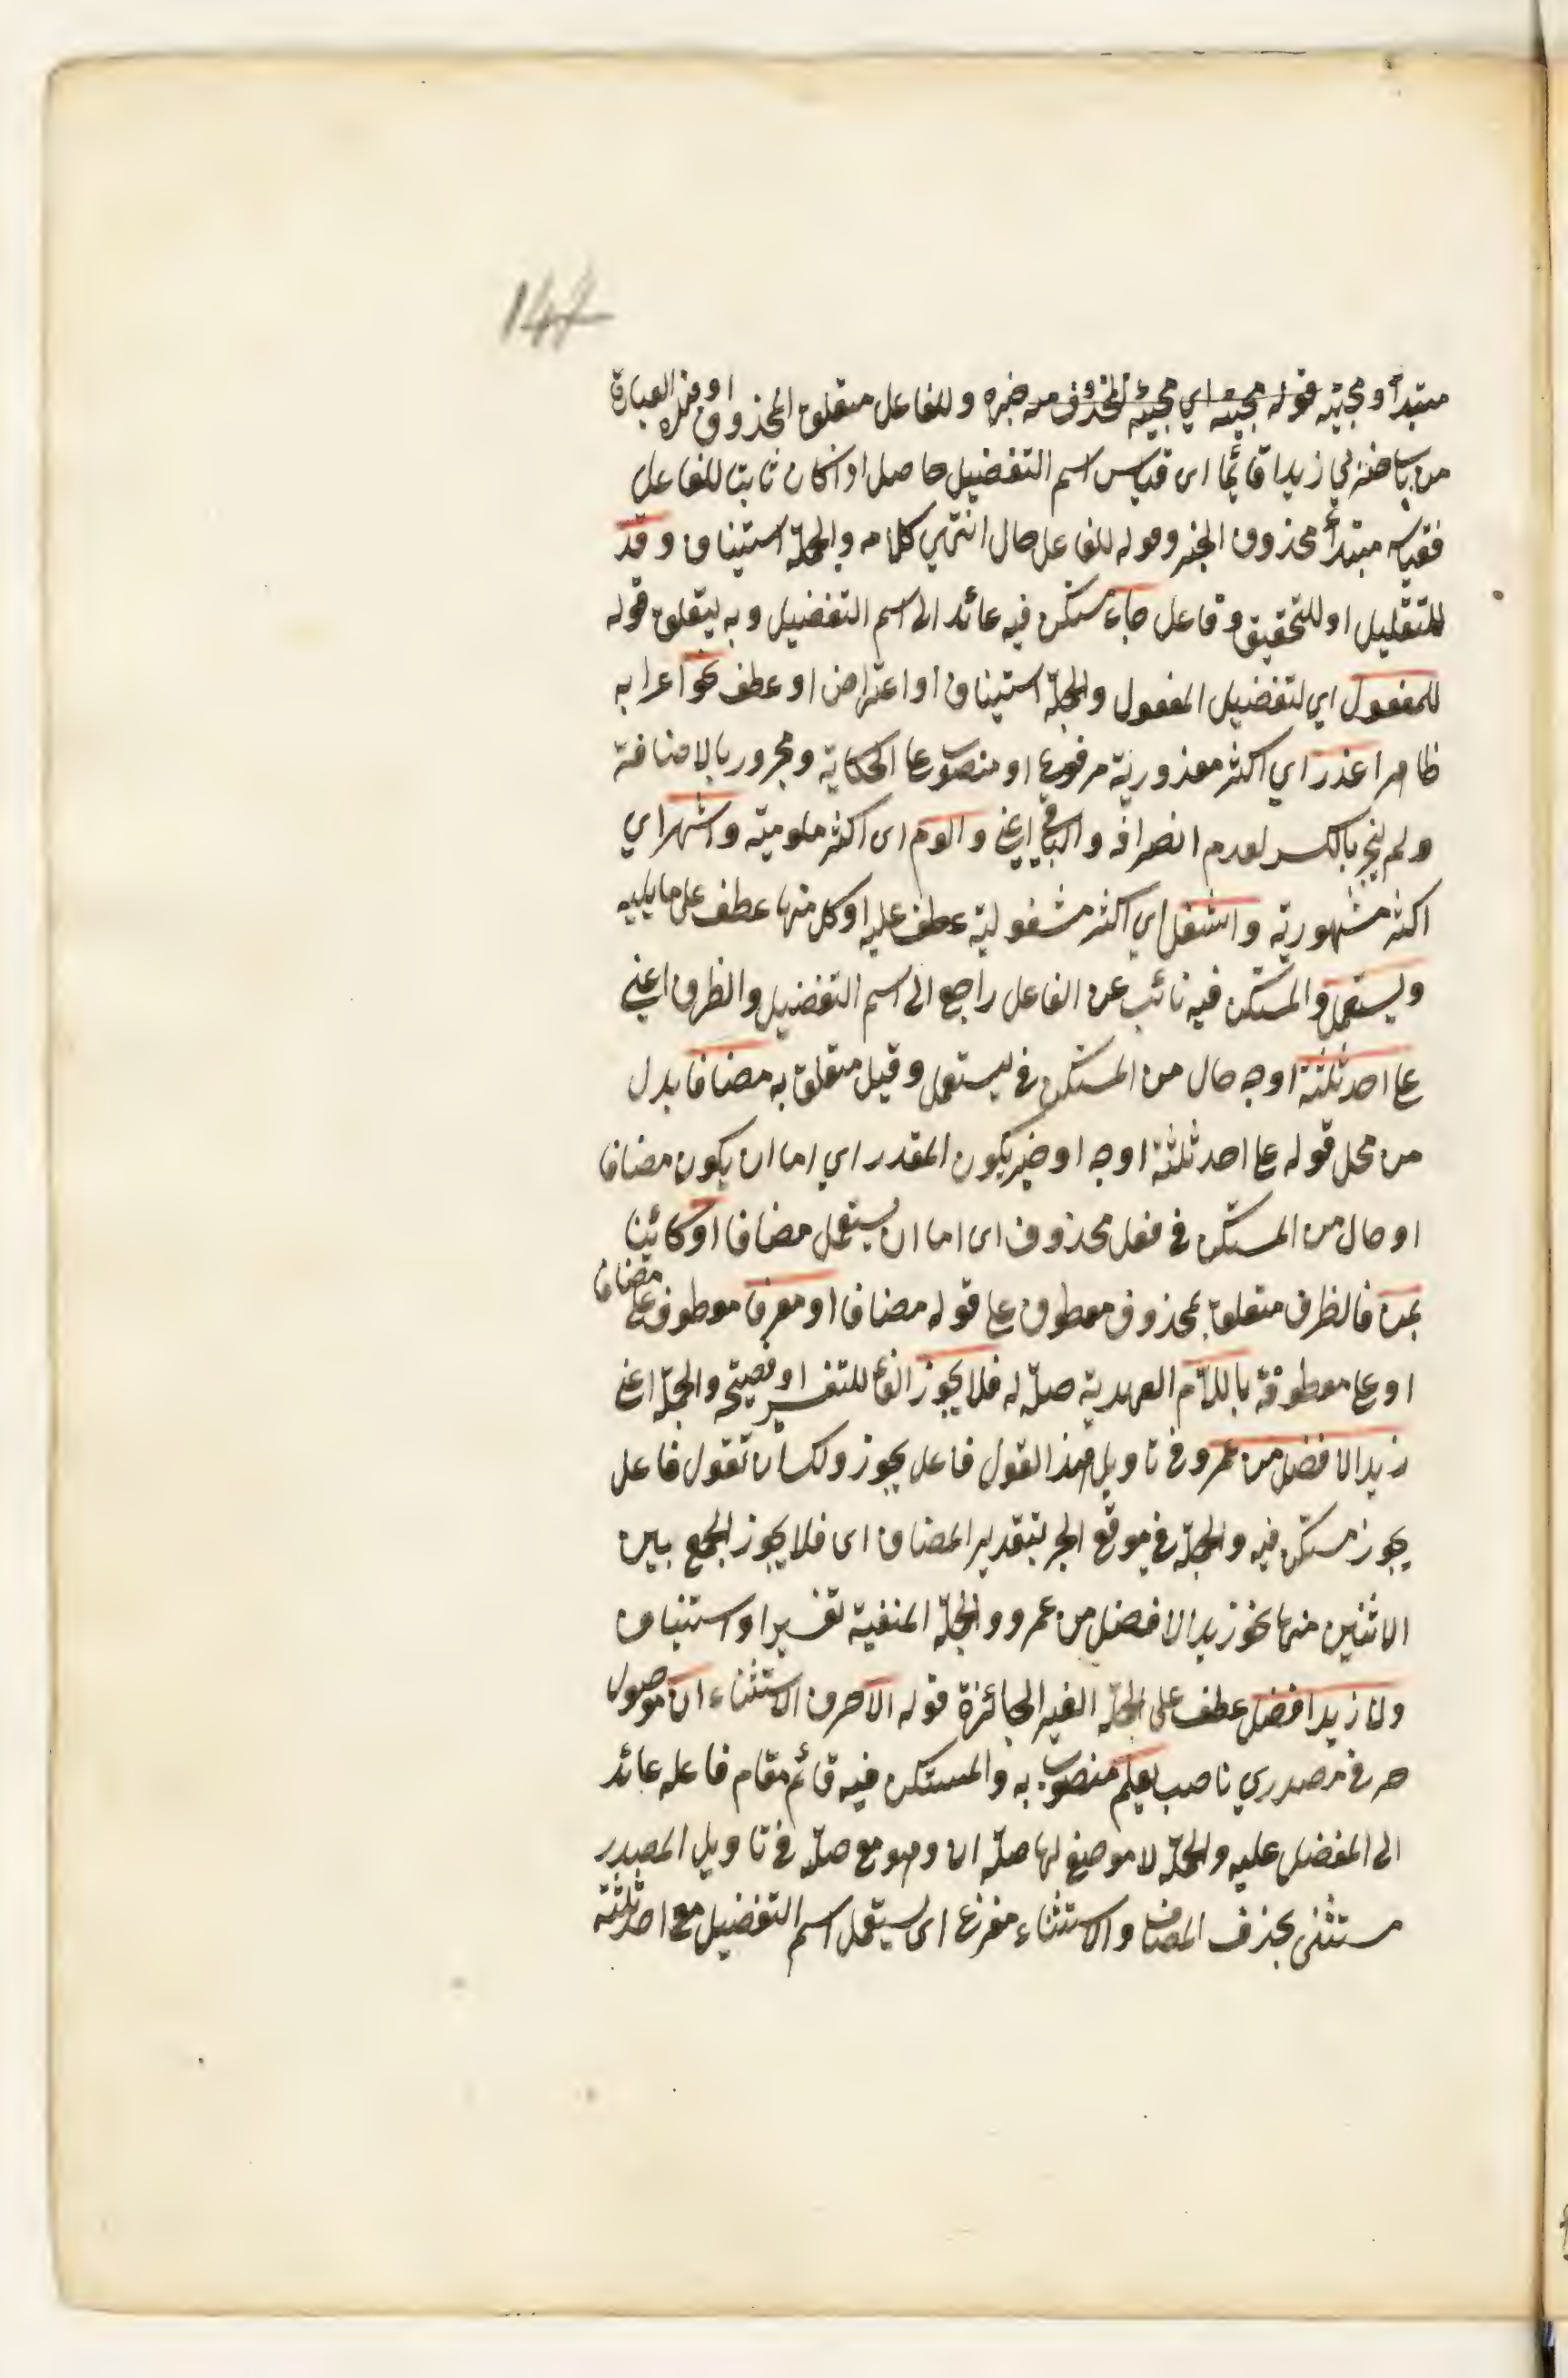 147
مبتدأ ومجيئه قوله مجيئه اي مجيئه لمحذوف خبره وللفاعل متعلق المحذوف او من العبارة
من باب ضربي زيدا قائما اى قياس اسم التفضيل حاصل اذا كان ثابتا للفاعل
فقياسه مبتدأ محذوف الخبر وقوله للفاعل حال انتهي كلامه والجملة استيناف وقد
للتقليل او للتحقيق وفاعل جاء مستكن فيه عائد الى اسم التفضيل وبه يتعلق قوله
للمفعول اي لتفضيل المفعول والجملة استيناف او اعتراض او عطف نحو اعرابه
ظاهر اعذر اي اكثر معذورية مرفوع او منصوب عا الحكاية ومجرور بالاضافة
ولم ينجر بالكسر لعدم انصرافه والباقي والوم اى اكثر ملومية واشهر اي
اكثر مشهورية واشغل اي اكثر مشغولية عطف عليه او كل منها عطف على ما يليه
ويستعمل والمستكن فيه نائب عن الفاعل راجع الى اسم التفضيل والظرف اعني
عا احد ثلثة اوجه حال من المستكن في يستعمل وقيل متعلق به مضافا بدل
من محل قوله عا احد ثلثة اوجه او خبر يكون المقدر اي اما ان يكون مضافا
او حال من المستكن في فعل محذوف اى اما ان يستعمل مضافا او كائنا
بمن فالظرف متعلق بمحذوف معطوف عا قوله مضافا او معرفا معطوف على مضافا
او عا معطوفة باللام العهدية صلة له فلا يجوز الفاء للتفسير او فصيحة والجملة اعني
زيد الافضل من عمرو في تاويل هذا القول فاعل يجوز ولك ان تقول فاعل
يجوز مستكن فيه والجملة في موقع الجر بتقدير المضاف اى فلا يجوز الجمع بين
الاثنين منها نحو زيد الافضل من عمرو والجملة المنفية تفسير او استيناف
ولا زيد افضل عطف على الجملة الغير الجائزة قوله الا حرف الاستثناء ان موصول
حرفي مصدري ناصب يعلم منصوب به والمستكن فيه قائم مقام فاعله عائد
الى المفضل عليه والجملة لا موضع لها صلة ان وهو مع صلة في تاويل المصدر
مستثنى بحذف المضاف والاستثناء مفرغ اى يستعمل اسم التفضيل مع احد ثلثة